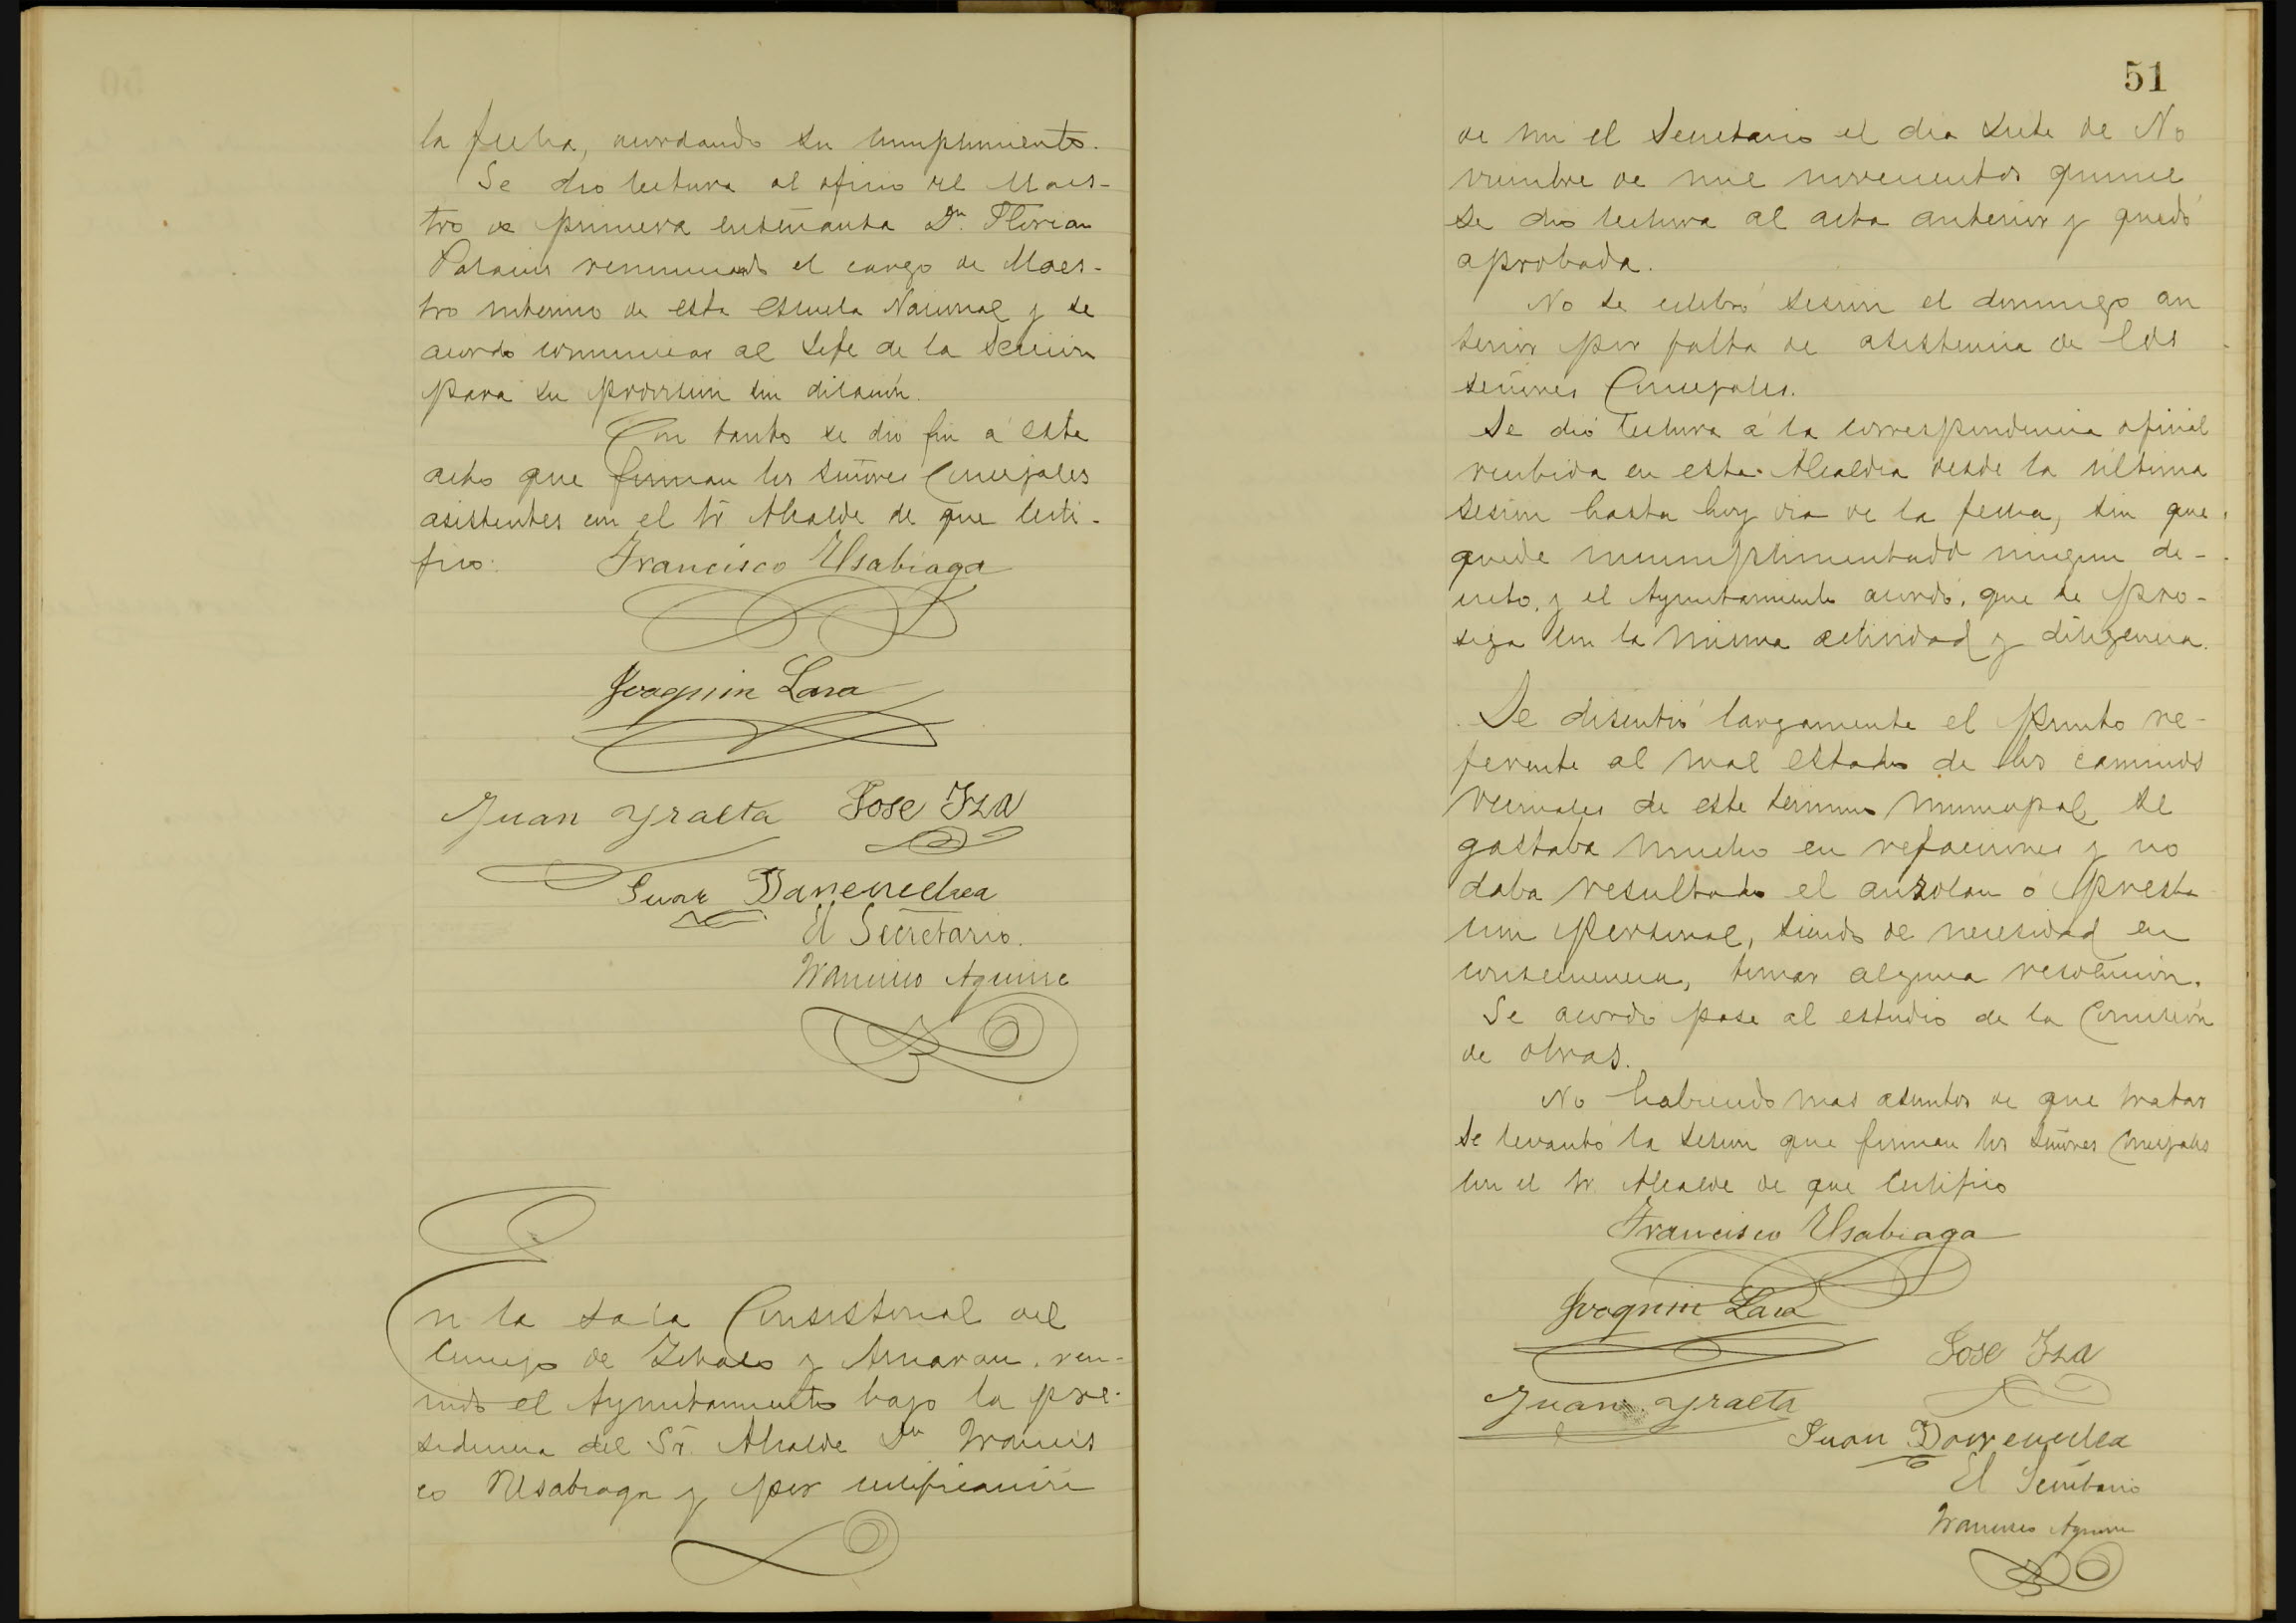 la fecha, acordando su cumplimiento.
Se dio lectura al oficio del Maes-
tro de primera enseñanza Dn. Florian
Palacios renunciando el cargo de Maes-
tro interino de esta escuela Nacional y se
acordó comunicar al Jefe de la Sección
para su provisión sin dilación.
Con tanto se dió fin á este
acto que firman los señores Concejales
asistentes con el Sr Alcalde de que certi-
fico:
Francisco Usabiaga
Joaquin Lasa
Juan Yraeta Jose Iza
Juan Barrenechea
El Secretario.
Francisco Aguirre
En la sala Consistorial del
Concejo de Ichaso y Arriaran, reu-
nido el Ayuntamiento bajo la pre-
sidencia del Sr. Alcalde Dn Francis
co Usabiaga y por certificación
51
de mi el Secretario el dia siete de No
viembre de mil novecientos quince
se dio lectura al acta anterior y quedó
aprobada.
No se celebró sesion el domingo an
terior por falta de asistencia de los
señores Concejales.
Se dió lectura á la correspondencia oficial
recibida en esta Alcaldia desde la última
sesion hasta hoy dia de la fecha, sin que
quede incumplimentado ningun de-
creto, y el Ayuntamiento acordó, que se pro-
siga con la misma actividad y diligencia.
Se discutió largamente el punto re-
ferente al mal estado de los caminos
vecinales de este termino municipal, se
gastaba mucho en refacciones y no
daba resultado el auzolan o presta
cion personal, siendo de necesidad en
consecuencia, tomar alguna resolución.
Se acordó pase al estudio de la Comisión
de obras.
No habiendo mas asuntos de que tratar
se levantó la sesion que firman los señores Concejales
con el Sr. Alcalde de que certifico
Francisco Usabiaga
Joaquin Lasa
Jose Iza
Juan Yraeta
Juan Barrenechea
El Secretario
Francisco Aguirre